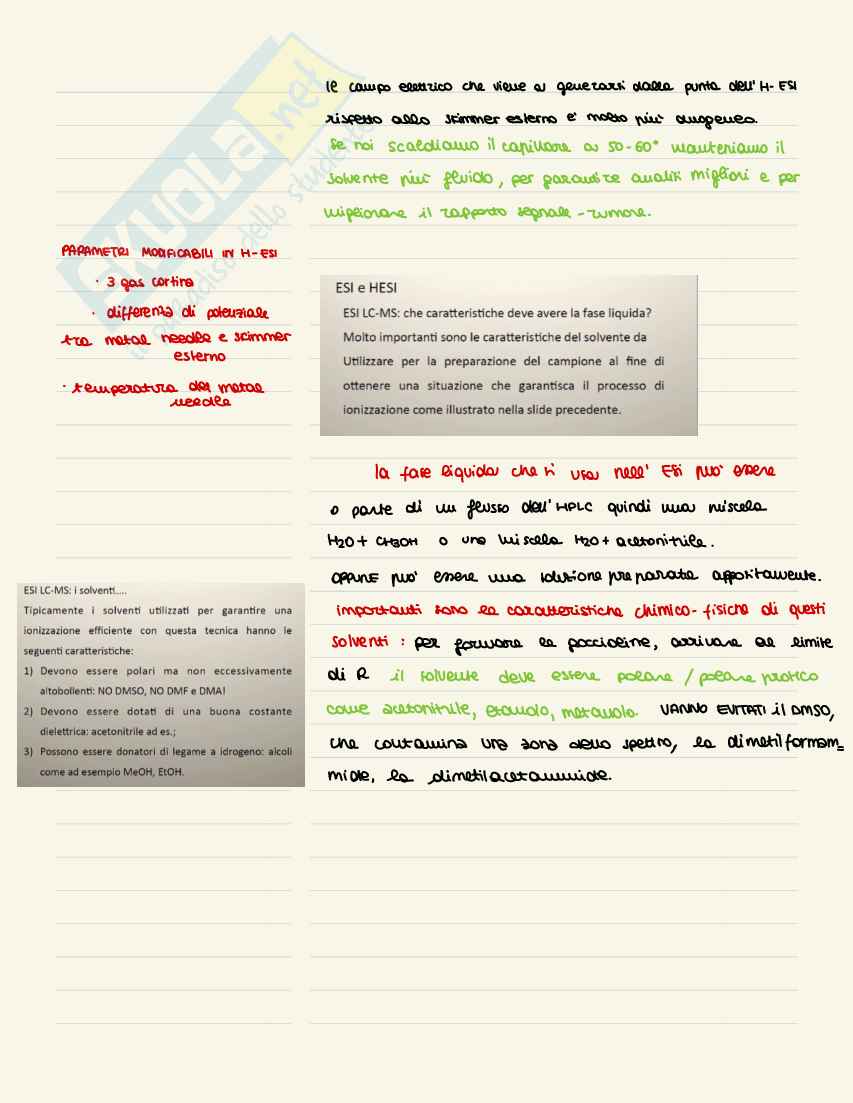 Il campo elettrico che viene a generarsi dalla punta dell'H-ESI
rispetto allo skimmer esterno è molto più omogeneo.
Se noi scaldiamo il capillare a 50-60° manteniamo il
solvente più fluido, per garantire analisi migliori e per
migliorare il rapporto segnale-rumore.
PARAMETRI MODIFICABILI IN H-ESI
· 3 gas cortina
· differenza di potenziale
tra metal needle e skimmer
esterno
· temperatura del metal
needle
ESI e HESI
ESI LC-MS: che caratteristiche deve avere la fase liquida?
Molto importanti sono le caratteristiche del solvente da
Utilizzare per la preparazione del campione al fine di
ottenere una situazione che garantisca il processo di
ionizzazione come illustrato nella slide precedente.
la fase liquida che si usa nell' ESI può essere
o parte di un flusso dell'HPLC quindi una miscela
H2O + CH3OH o una miscela H2O + acetonitrile.
OPPURE può essere una soluzione preparata appositamente.
importanti sono le caratteristiche chimico-fisiche di questi
solventi : per formare le goccioline, arrivare al limite
di R il solvente deve essere polare / polare protico
come acetonitrile, etanolo, metanolo. VANNO EVITATI il DMSO,
che contamina una zona dello spettro, la dimetilformam=
mide, la dimetilacetammide.
ESI LC-MS: i solventi....
Tipicamente i solventi utilizzati per garantire una
ionizzazione efficiente con questa tecnica hanno le
seguenti caratteristiche:
1) Devono essere polari ma non eccessivamente
altobollenti: NO DMSO, NO DMF e DMA!
2) Devono essere dotati di una buona costante
dielettrica: acetonitrile ad es.;
3) Possono essere donatori di legame a idrogeno: alcoli
come ad esempio MeOH, EtOH.
SKUOLA.net
il paradiso dello studente